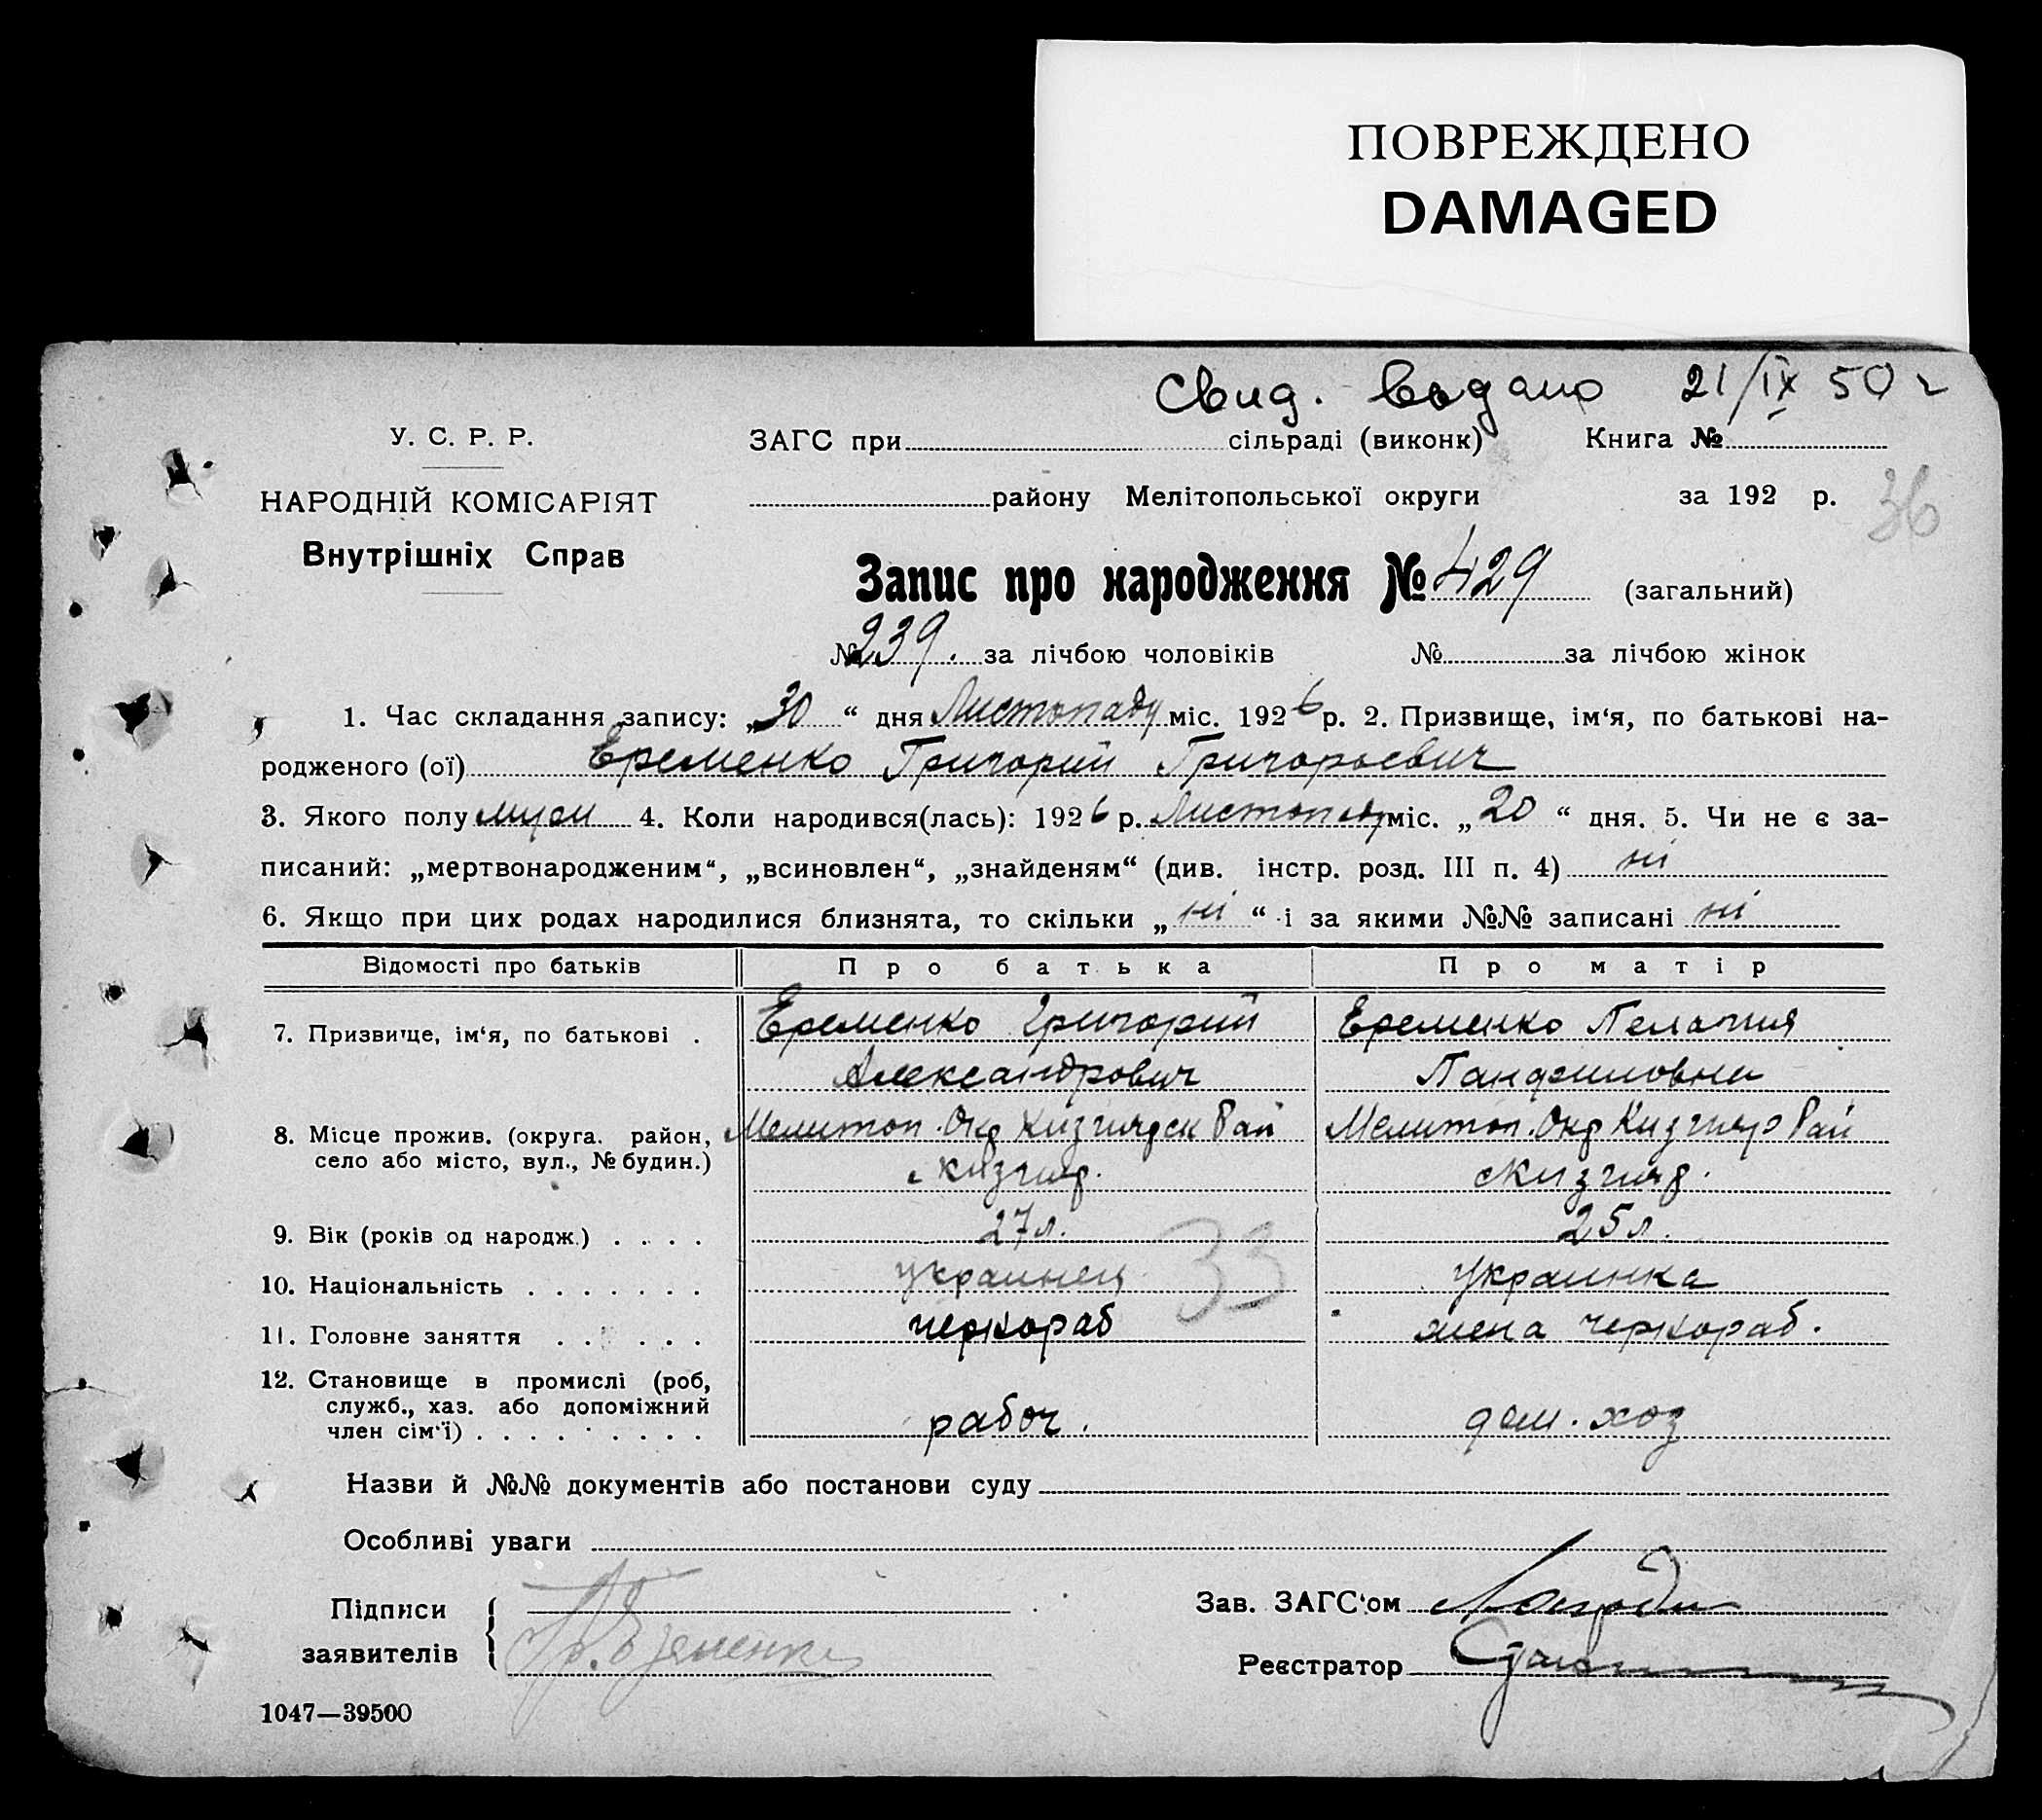 ПОВРЕЖДЕНО
DAMAGED
Свид. выдано 21/IX 50 г
У. С. Р. Р.
НАРОДНІЙ КОМІСАРІЯТ
Внутрішніх Справ
ЗАГС при сільраді (виконк) Книга №
району Мелітопольської округи за 192 р. 36
Запис про народження № 429 (загальний)
№ 239. за лічбою чоловіків № за лічбою жінок
1. Час складання запису: „30“ дня Листопаду міс. 1926 р. 2. Призвище, ім‘я, по батькові на-
родженого (ої) Еременко Григорий Григорьевич
3. Якого полу муж 4. Коли народився(лась): 1926 р. Листопаду міс. „20“ дня. 5. Чи не є за-
писаний: „мертвонародженим“, „всиновлен“, „знайденям“ (див. інстр. розд. III п. 4) ні
6. Якщо при цих родах народилися близнята, то скільки „ні“ і за якими №№ записані ні
Відомості про батьків Про батька Про матір
7. Призвище, ім‘я, по батькові . Еременко Григорий Еременко Пелагия
Александрович Панфиловна
8. Місце прожив. (округа. район, Мелитоп. Окр Кизгиярск Рай Мелитоп. Окр Кизгияр Рай
село або місто, вул., № будин.) с Кизгияр. с Кизгияр.
9. Вік (років од народж.) . . . . 27 л. 25 л.
10. Національність . . . . . . . украинец 33 Украинка
11. Головне заняття . . . . . . чернораб жена чернораб.
12. Становище в промислі (роб, служб., хаз. або допоміжний
член сім‘ї) . . . . . . . . . рабоч. дом. хоз
Назви й №№ документів або постанови суду
Особливі уваги
Підписи
заявителів Гр. Еременко
Зав. ЗАГС‘ом
Реєстратор
1047—39500